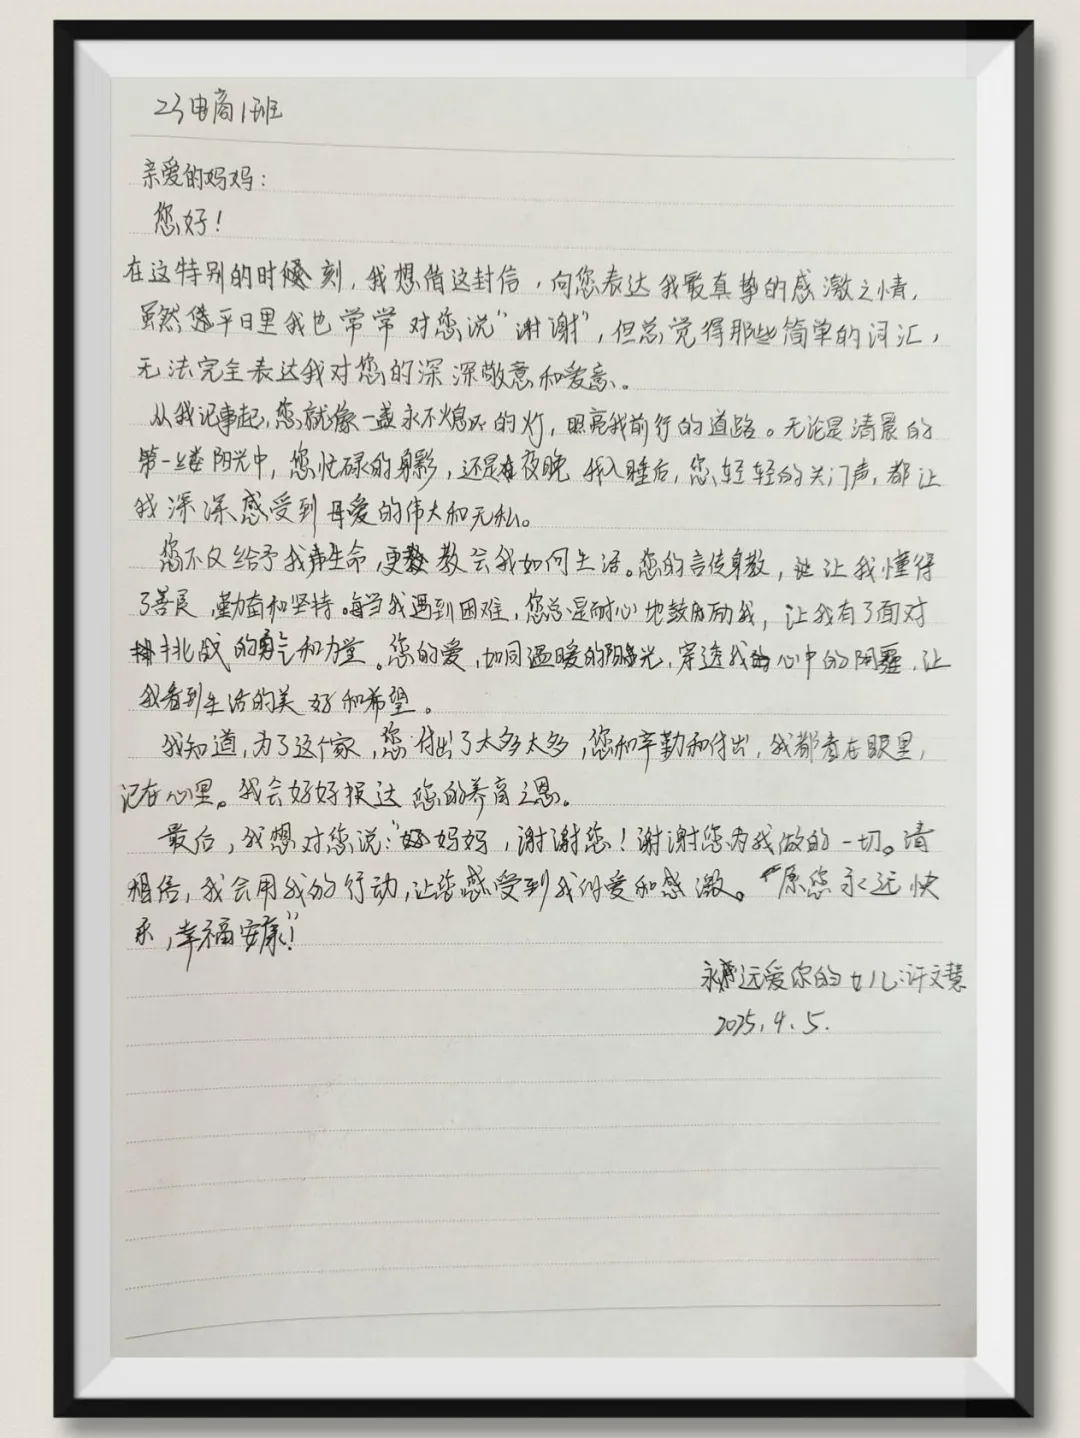 23电商1班
亲爱的妈妈：
您好！
在这特别的时刻，我想借这封信，向您表达我最真挚的感激之情，
虽然平日里我也常常对您说“谢谢”，但总觉得那些简单的词汇，
无法完全表达我对您的深深敬意和爱意。
从我记事起，您就像一盏永不熄灭的灯，照亮我前行的道路。无论是清晨的
第一缕阳光中，您忙碌的身影，还是夜晚我入睡后，您轻轻的关门声，都让
我深深感受到母爱的伟大和无私。
您不仅给予我生命，更教会我如何生活。您的言传身教，让我懂得
了善良，勤奋和坚持。每当我遇到困难，您总是耐心地鼓励我，让我有了面对
挑战的勇气和力量。您的爱，如同温暖的阳光，穿透我心中的阴霾，让
我看到生活的美好和希望。
我知道，为了这个家，您付出了太多太多，您和辛勤和付出，我都看在眼里，
记在心里。我会好好报达您的养育之恩。
最后，我想对您说：“妈妈，谢谢您！谢谢您为我做的一切。请
相信，我会用我的行动，让您感受到我的爱和感激。“原您永远快
乐，幸福安康”！
永远爱你的女儿：许文慧
2025.4.5.